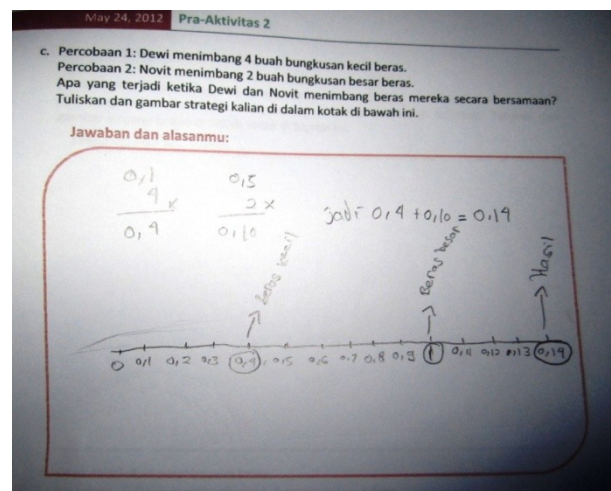 May 24, 2012 Pra-Aktivitas 2
c. Percobaan 1: Dewi menimbang 4 buah bungkusan kecil beras.
Percobaan 2: Novit menimbang 2 buah bungkusan besar beras.
Apa yang terjadi ketika Dewi dan Novit menimbang beras mereka secara bersamaan?
Tuliskan dan gambar strategi kalian di dalam kotak di bawah ini.
Jawaban dan alasanmu:
0,1 0,5
4 x 2 x
0,4 0,10
jadi 0,4 + 0,10 = 0,14
Beras kecil
Beras besar
Hasil
0 0,1 0,2 0,3 0,4 0,5 0,6 0,7 0,8 0,9 1 0,11 0,12 0,13 0,14